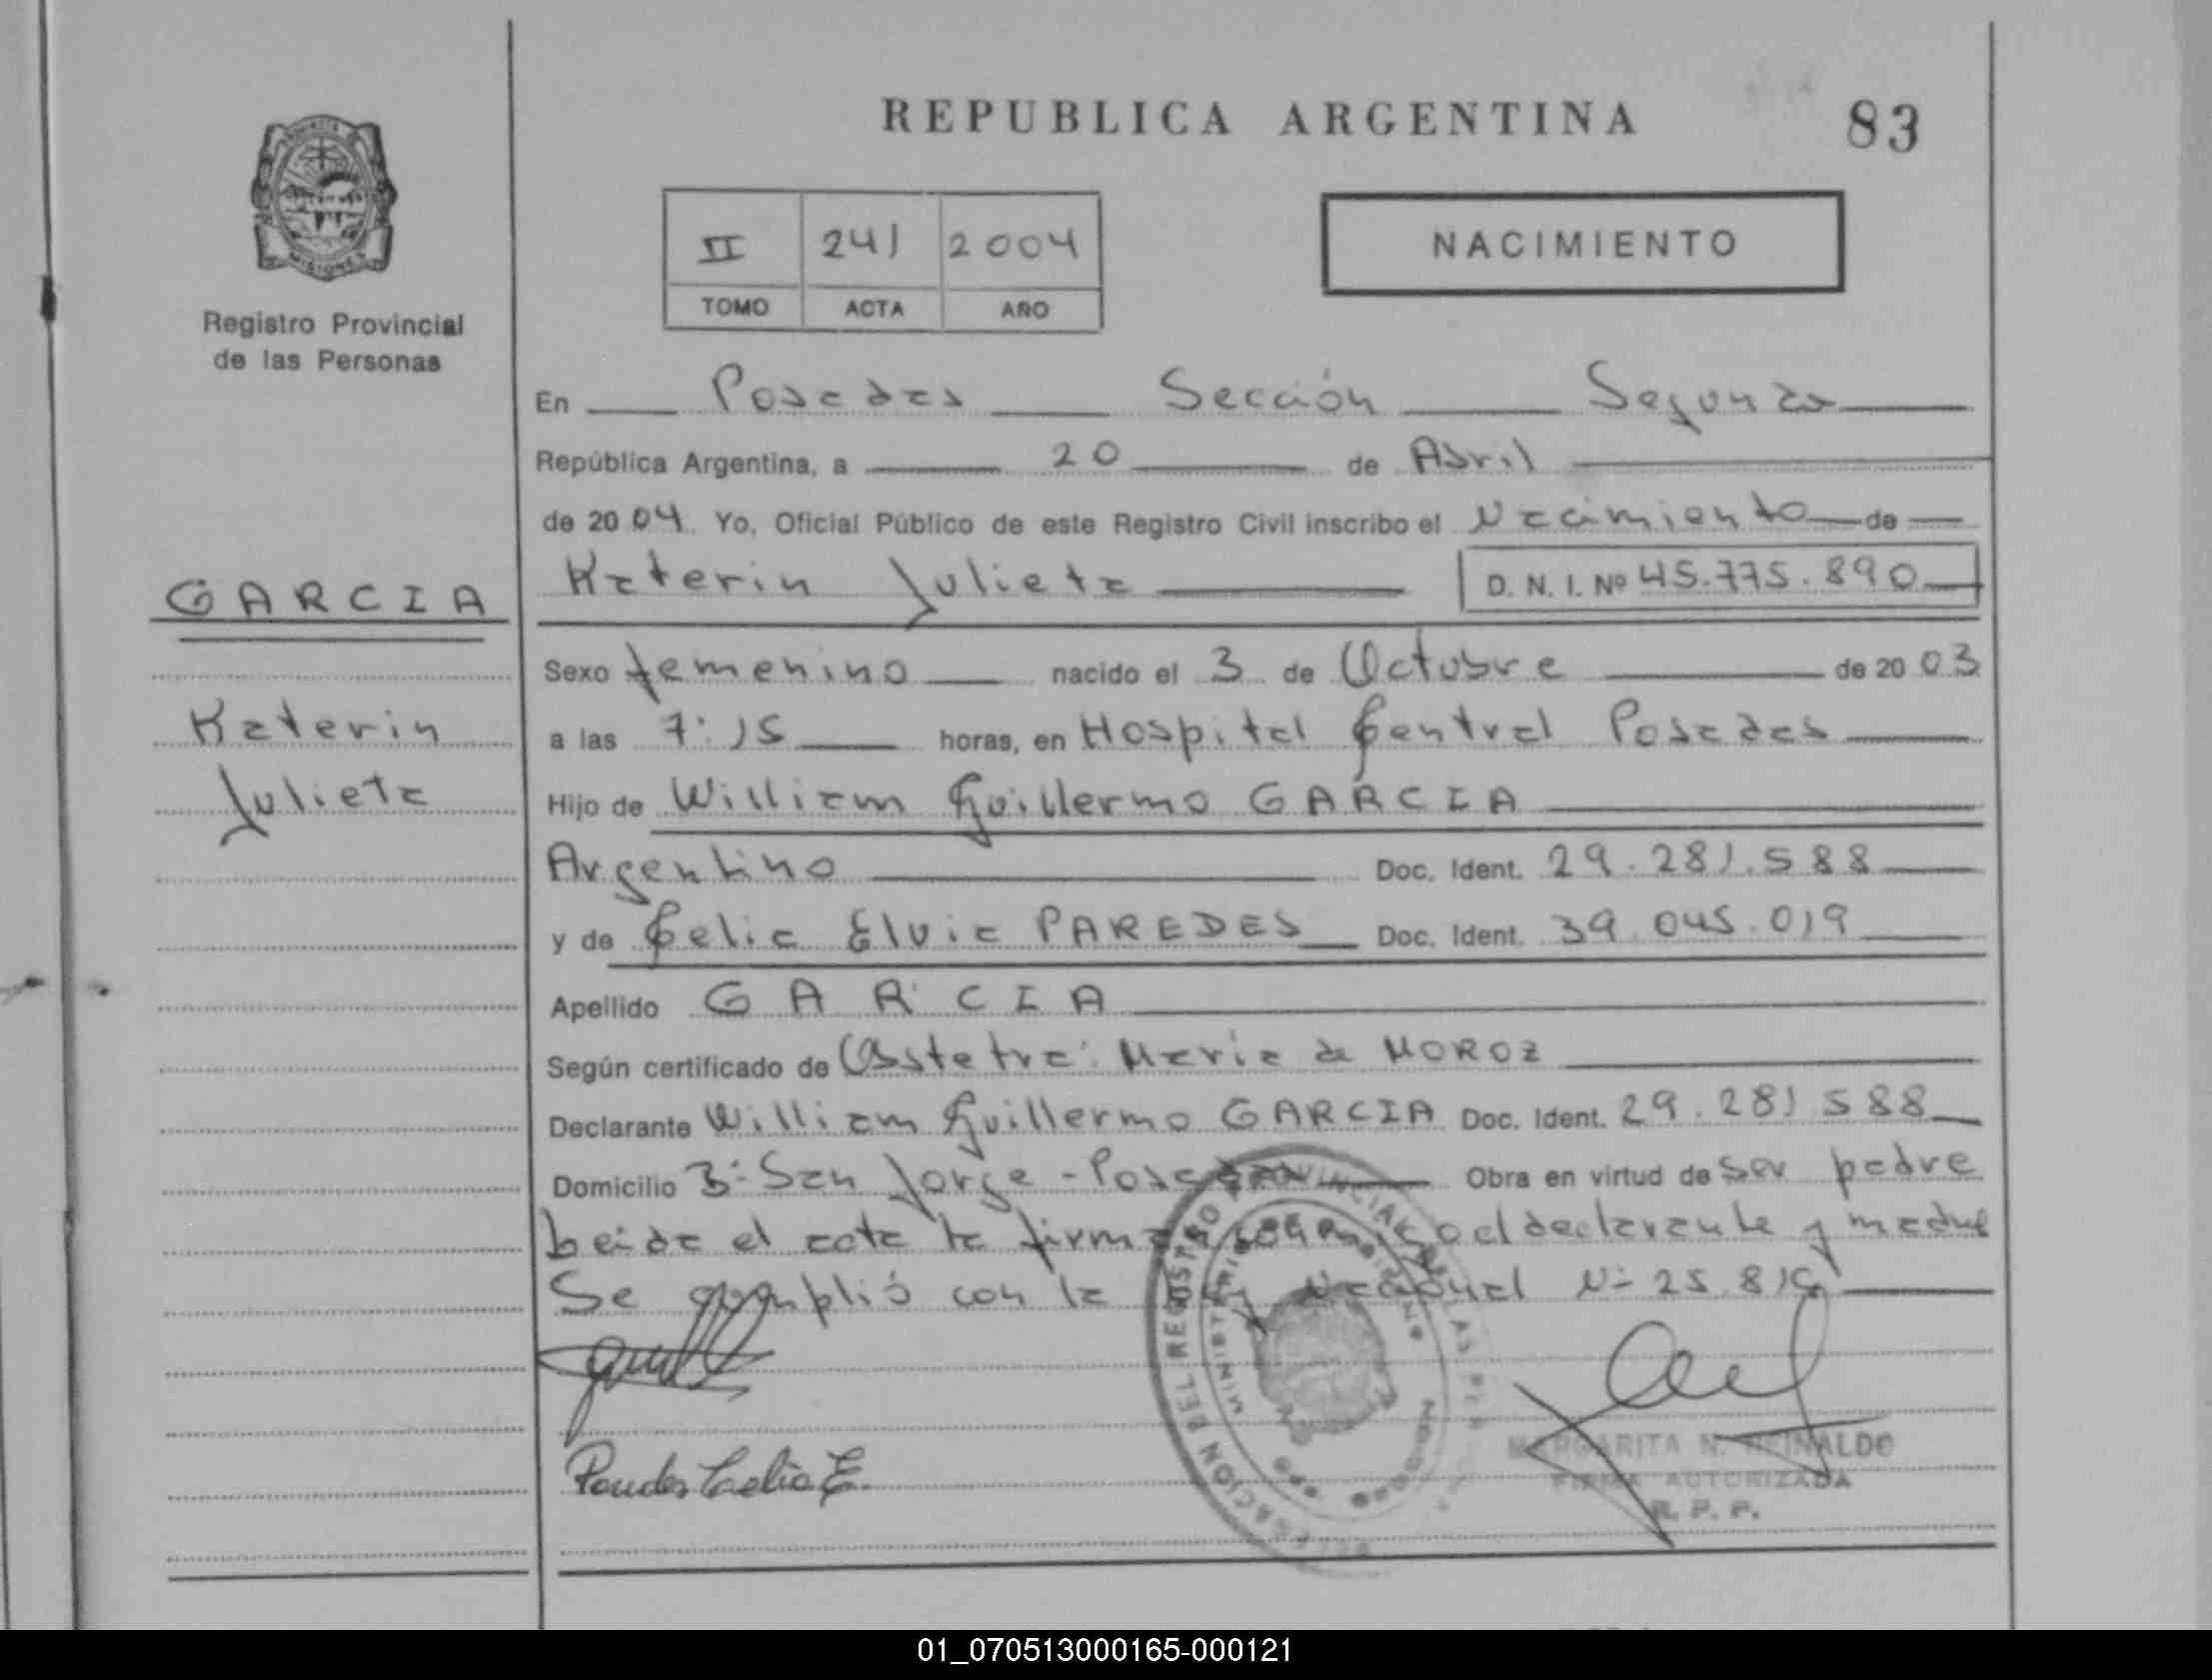 REPUBLICA ARGENTINA
83
MISIONES
Registro Provincial
de las Personas
II 241 2004
TOMO ACTA AÑO
NACIMIENTO
En Posadas Sección Segunda
República Argentina, a 20 de Abril
de 2004 Yo, Oficial Público de este Registro Civil inscribo el Nacimiento de
Katerin Julieta D. N. I. Nº 45.775.890
GARCIA
Katerin
Julieta
Sexo femenino nacido el 3 de Octubre de 2003
a las 7:15 horas, en Hospital Central Posadas
Hijo de William Guillermo GARCIA
Argentino Doc. Ident. 29.281.588
y de Celia Elvia PAREDES Doc. Ident. 39.045.019
Apellido GARCIA
Según certificado de Obstetra: Maria de MOROZ
Declarante William Guillermo GARCIA Doc. Ident. 29.281.588
Domicilio Bº San Jorge - Posadas Obra en virtud de ser padre
Leida el acta la firman conmigo el declarante y madre
Se cumplió con la Ley Nacional Nº 25.819
Paredes Celia E.
MARGARITA N. REINALDO
FIRMA AUTORIZADA
R. P. P.
01_070513000165-000121